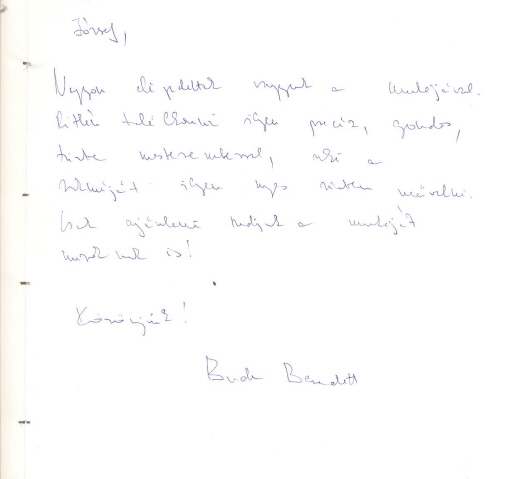 József,
Nagyon elégedettek vagyunk a munkájával.
Ritkán találkozni ilyen precíz, gondos,
tiszta mesteremberrel, aki a
szakmáját ilyen magas szinten műveli.
Csak ajánlani tudjuk a munkáját
másoknak is!
Köszönjük!
Bude Benedett